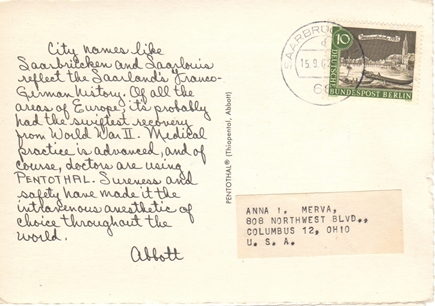 City names like
Saarbrücken and Saarlouis
reflect the Saarland's Franco-
German history. Of all the
areas of Europe, it's probably
had the swiftest recovery
from World War II. Medical
practice is advanced, and of
course, doctors are using
PENTOTHAL. Sureness and
safety have made it the
intravenous anesthetic of
choice throughout the
world.
Abbott
PENTOTHAL® (Thiopental, Abbott)
SAARBRÜ
15.9.6
10
DEUTSCHE
BUNDESPOST BERLIN
ANNA I. MERVA,
808 NORTHWEST BLVD.,
COLUMBUS 12, OHIO
U. S. A.